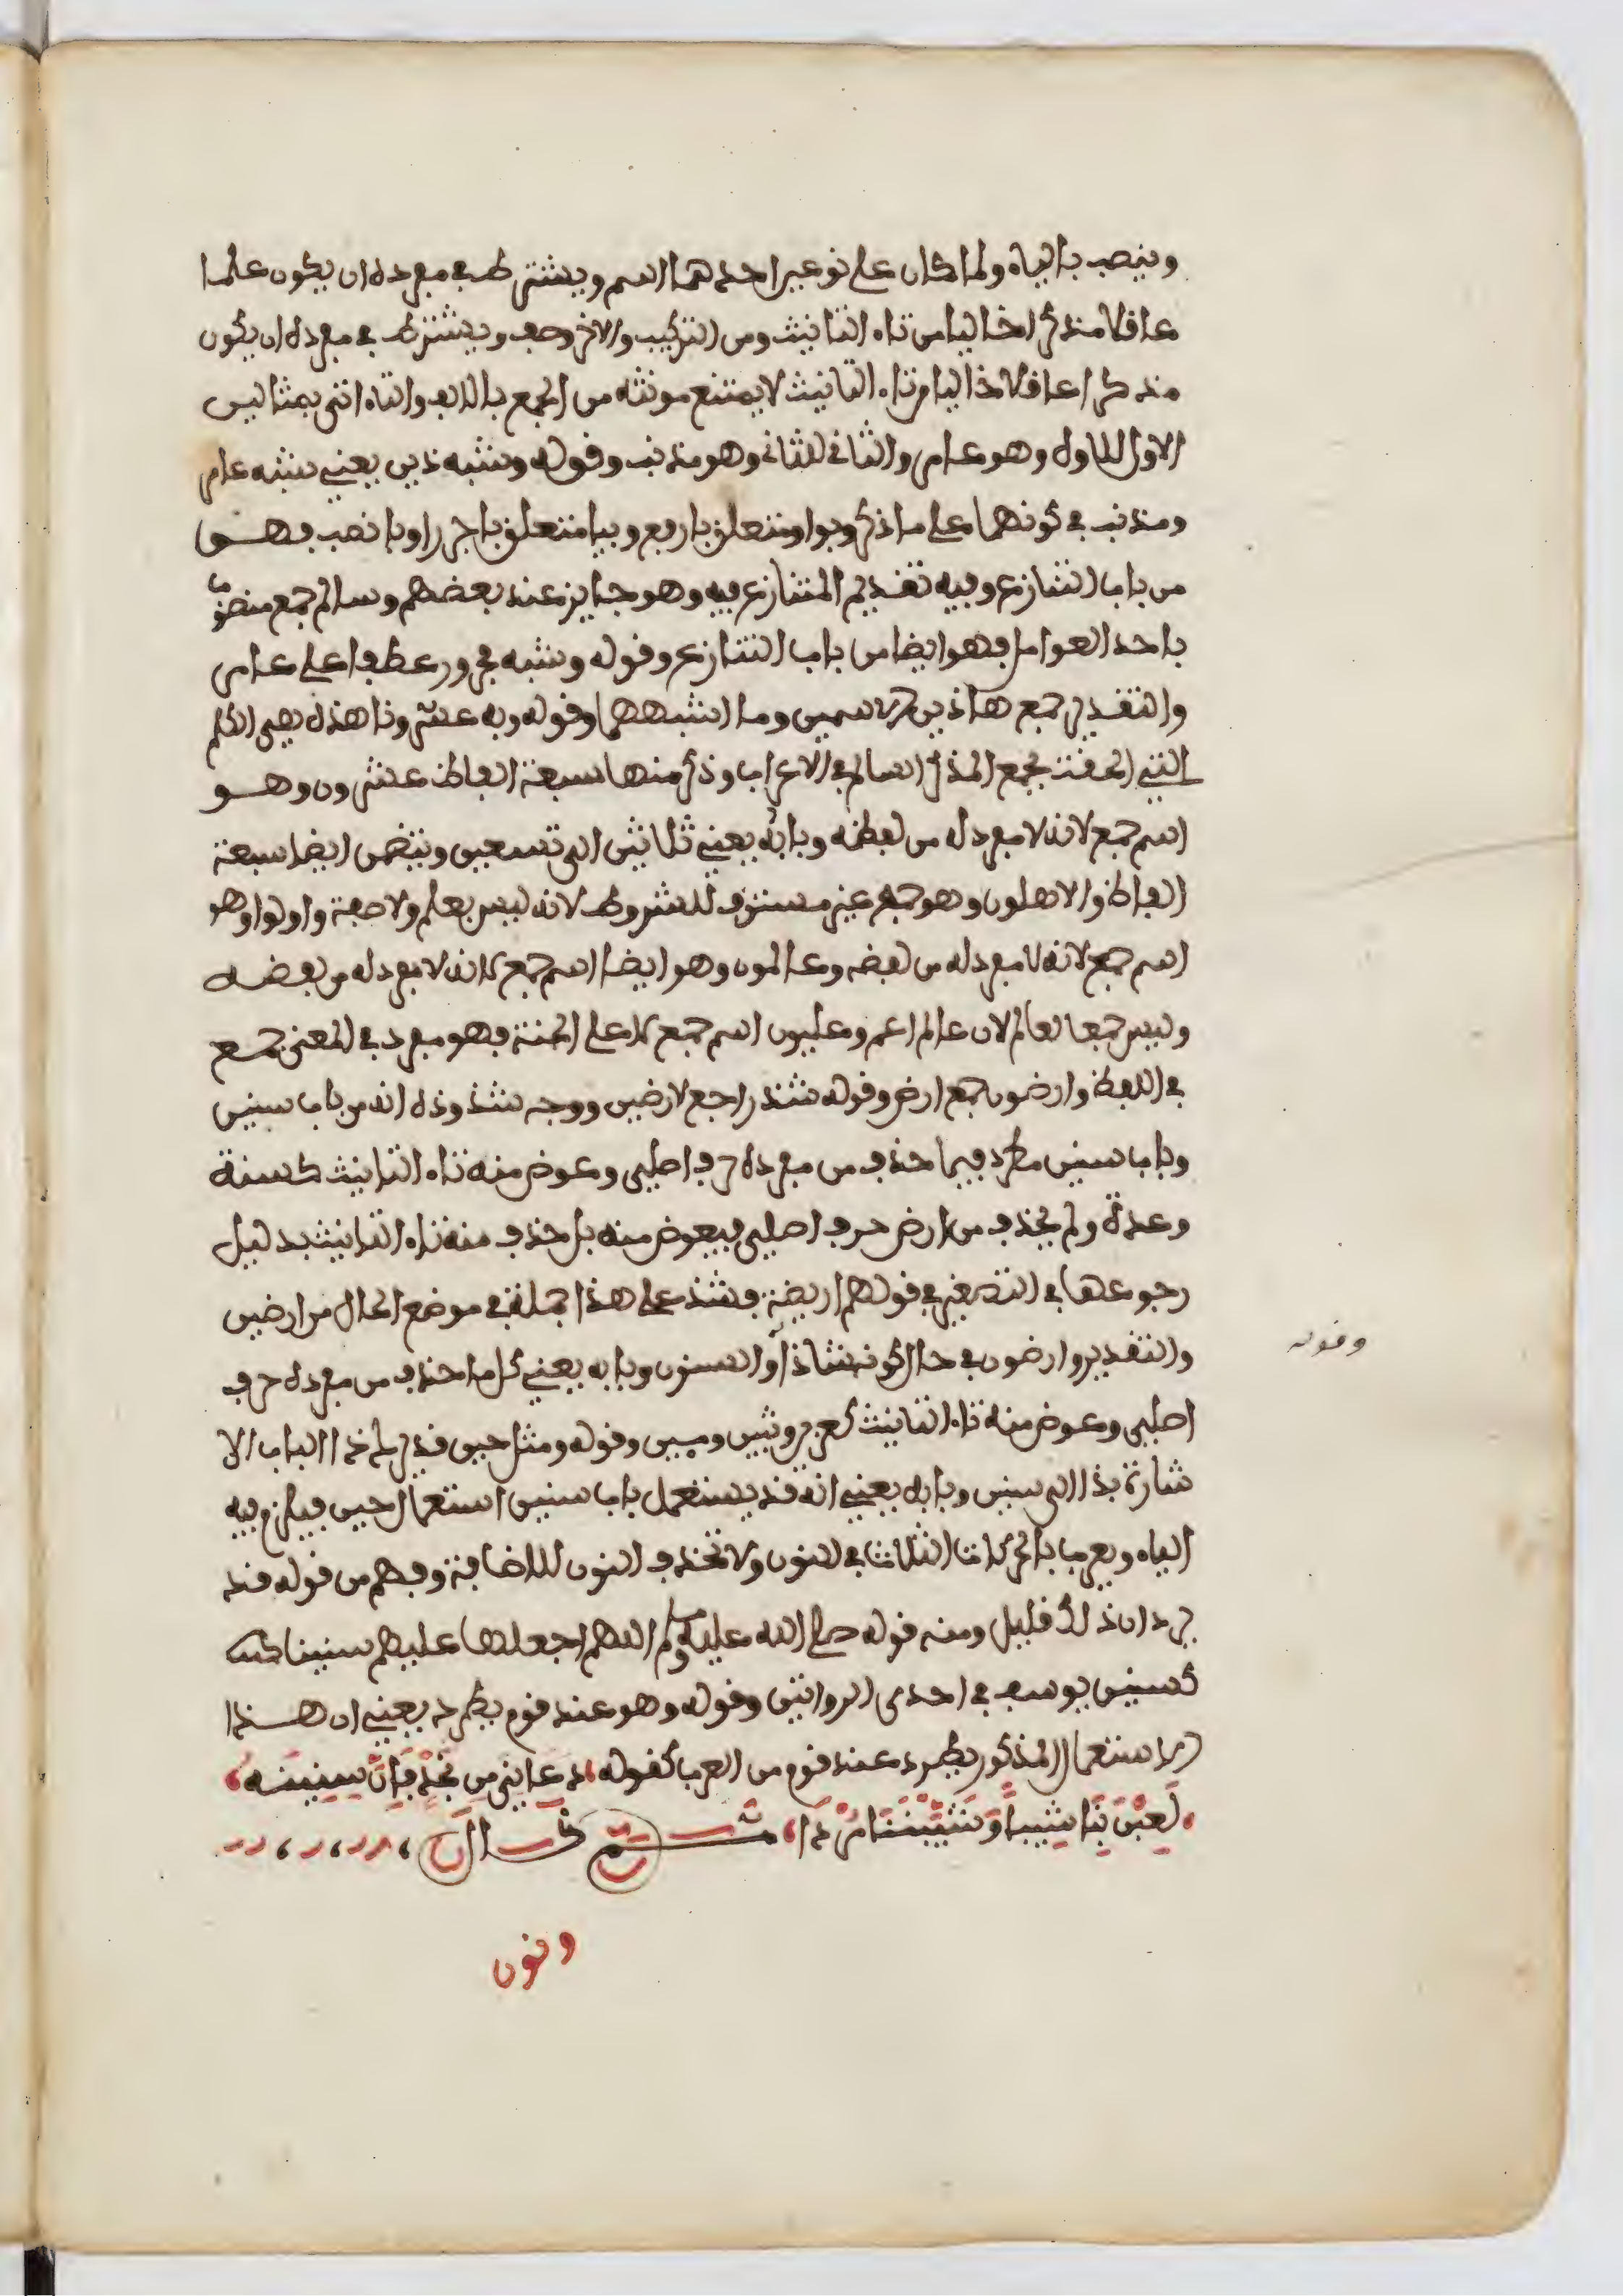 وينصب بالياء ولما كان على نوعين احدهما اسم ويشترط في مفرده ان يكون علما
عاقلا مذكرا خاليا من تاء التانيث ومن التركيب والاخر وصف ويشترط في مفرده ان يكون
مذكرا عاقلا خاليا من تاء التانيث لا يمتنع مونثه من الجمع بالالف والتاء اتى بمثالين
الاول للاول وهو عامر والثاني للثاني وهو مذنب وقوله وشبه ذين يعني شبه عامر
ومذنب في كونهما على ما ذكر وبواو متعلق بارفع وبيا متعلق باجرر او بانصب فهو
من باب التنازع وفيه تقديم المتنازع فيه وهو جايز عند بعضهم وسالم جمع منصوب
باحد العوامل فهو ايضا من باب التنازع وقوله وشبه مجرور عطفا على عامر
والتقدير جمع هاذين الاسمين وما اشبههما وقوله وبه عشرون هذه هي الكلم
التي الحقت بجمع المذكر السالم في الاعراب وذكر منها سبعة الفاظ عشرون وهو
اسم جمع لانه لا مفرد له من لفظه وبابه يعني ثلاثين الى تسعين ويتضمن ايضا سبعة
الفاظ والاهلون وهو جمع غير مستوف للشروط لانه ليس بعلم ولا صفة واولوا وهو
اسم جمع لانه لا مفرد له من لفضه وعالمون وهو ايضا اسم جمع لانه لا مفرد له من لفضه
وليس جمعا لعالم لان عالم اعم وعليون اسم جمع لاعلى الجنة فهو مفرد في المعنى جمع
في اللفظ وارضون جمع ارض وقوله شذ راجع لارضين ووجه شذوذه انه من باب سنين
وباب سنين مطرد فيما حذف من مفرده حرف اصلي وعوض منه تاء التانيث كسنة
وعدة ولم يحذف من ارض حرف اصلي فيعوض منه بل حذف منه تاء التانيث بدليل
رجوعها في التصغير في قولهم اريضة فشذ على هذا جملة في موضع الحال من ارضين
والتقدير وارضون في حال كونه شاذا والسنون وبابه يعني كل ما حذف من مفرده حرف
اصلي وعوض منه تاء التانيث كعزين وثبين ومئين وقوله ومثل حين قد يرد ذا الباب الا
شارة بذا الى سنين وبابه يعني انه قد يستعمل باب سنين استعمال حين فيلزم فيه
الياء ويعرب بالحركات الثلاث في النون ولا تحذف النون للاضافة وفهم من قوله قد
يرد ان ذلك قليل ومنه قوله صلى الله عليه وسلم اللهم اجعلها عليهم سنينا
كسنين يوسف في احدى الروايتين وقوله وهو عند قوم يطرد يعني ان هذا
الاستعمال المذكور يطرد عند قوم من العرب كقوله دَعَانِيَ مِن نَجْدٍ فَإِنَّ سِنِينَهُ
لَعِبْنَ بِنَا شِيباً وَشَيَّبْنَنَا مُرْدَا ثم قال
ونون
وقوله